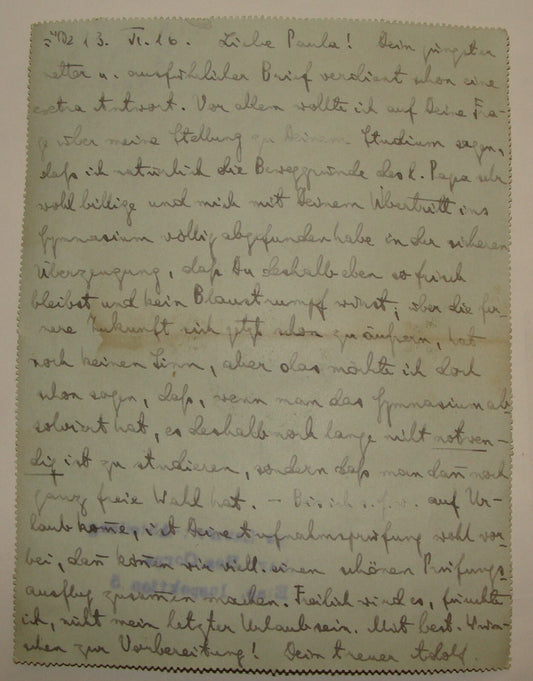 13. VI. 16. Liebe Paula! Dein jüngster
netter u. ausführlicher Brief verdient schon eine
extra Antwort. Vor allem wollte ich auf Deine Fra-
ge über meine Stellung zu Deinem Studium sagen,
daß ich natürlich die Beweggründe des l. Papa sehr
wohl billige und mich mit Deinem Übertritt ins
Gymnasium völlig abgefunden habe in der sicheren
Überzeugung, daß Du deshalb eben so frisch
bleibst und kein Blaustrumpf wirst; über die fer-
nere Zukunft sich jetzt schon zu äußern, hat
noch keinen Sinn, aber das möchte ich doch
schon sagen, daß, wenn man das Gymnasium ab-
solviert hat, es deshalb noch lange nicht notwen-
dig ist zu studieren, sondern daß man dan̅ noch
ganz freie Wahl hat. – Bis ich auf Ur-
laub kom̅e, ist Deine Aufnahmsprüfung wohl vor-
bei, dan̅ kön̅en wir viell. einen schönen Prüfungs-
ausflug zusam̅en machen. Freilich wird es, fürchte
ich, nicht mein letzter Urlaub sein. Mit best. Wün-
schen zur Vorbereitung! Dein treuer Adolf.